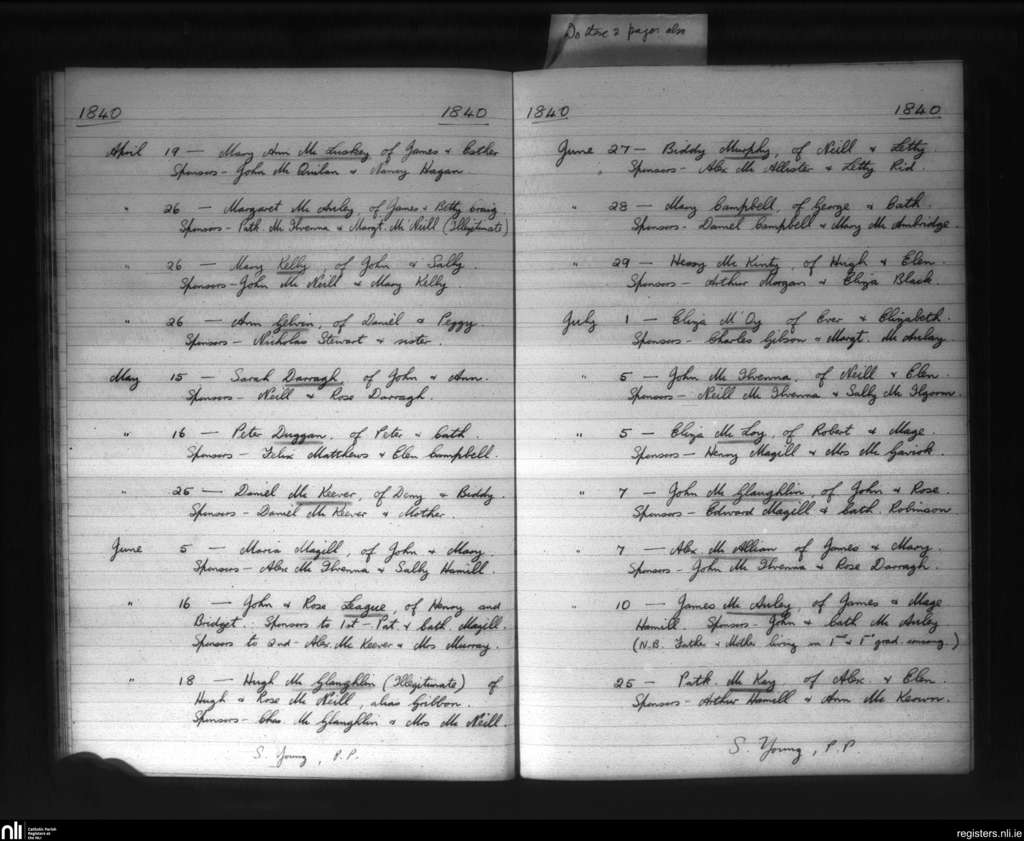 Do these 2 pages also
1840 1840
April 19 — Mary Ann Mc Luskey of James & Esther
Sponsors - John Mc Quilan & Nancy Hagan
" 26 — Margaret Mc Auley, of James & Betty Craig.
Sponsors - Patk. Mc Ilvenna & Margt. Mc Neill (Illegitimate)
" 26 — Mary Kelly, of John & Sally.
Sponsors - John Mc Neill & Mary Kelly.
" 26 — Ann Gelvin, of Daniel & Peggy
Sponsors - Nicholas Stewart & sister.
May 15 — Sarah Darragh, of John & Ann.
Sponsors - Neill & Rose Darragh.
" 16 — Peter Duggan, of Peter & Cath.
Sponsors - Felix Matthews & Elen Campbell.
" 25 — Daniel Mc Keever, of Deny & Biddy.
Sponsors - Daniel Mc Keever & Mother.
June 5 — Maria Magill, of John & Mary.
Sponsors - Alex Mc Ilvenna & Sally Hamill.
" 16 — John & Rose League, of Henry and
Bridget. Sponsors to 1st - Pat. & Cath. Magill.
Sponsors to 2nd - Alex. Mc Keever & Mrs Murray.
" 18 — Hugh Mc Glaughlin (Illegitimate) of
Hugh & Rose Mc Neill, alias Gribbon.
Sponsors - Chas. Mc Glaughlin & Mrs Mc Neill.
S. Young, P.P.
1840 1840
June 27 — Biddy Murphy, of Neill & Letty.
Sponsors - Alex Mc Allister & Letty Rid.
" 28 — Mary Campbell, of George & Cath.
Sponsors - Daniel Campbell & Mary Mc Ambridge.
" 29 — Henry Mc Kinty, of Hugh & Elen.
Sponsors - Arthur Morgan & Eliza Black.
July 1 — Eliza M'Oy of Ever & Elizabeth.
Sponsors - Charles Gibson & Margt. Mc Aulay.
" 5 — John Mc Ilvenna, of Neill & Elen.
Sponsors - Neill Mc Ilvenna & Sally Mc Ilgorm.
" 5 — Eliza Mc Loy, of Robert & Mage.
Sponsors - Henry Magill & Mrs Mc Gavock.
" 7 — John Mc Glaughlin, of John & Rose.
Sponsors - Edward Magill & Cath. Robinson.
" 7 — Alex. Mc Allian of James & Mary.
Sponsors - John Mc Ilvenna & Rose Darragh.
" 10 — James Mc Auley, of James & Mage
Hamill. Sponsors - John & Cath Mc Auley
(N.B. Father & Mother living in 1st & 1st grad. consang.)
25 — Patk. Mc Kay of Alex. & Elen.
Sponsors - Arthur Hamill & Ann Mc Keown.
S. Young, P.P.
nli Catholic Parish
Registers at
the NLI
registers.nli.ie